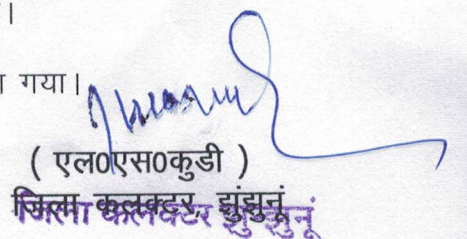 ।
गया।
( एल0एस0कुडी )
जिला कलक्टर, झुंझुनूं
जिला कलक्टर झुंझुनूं